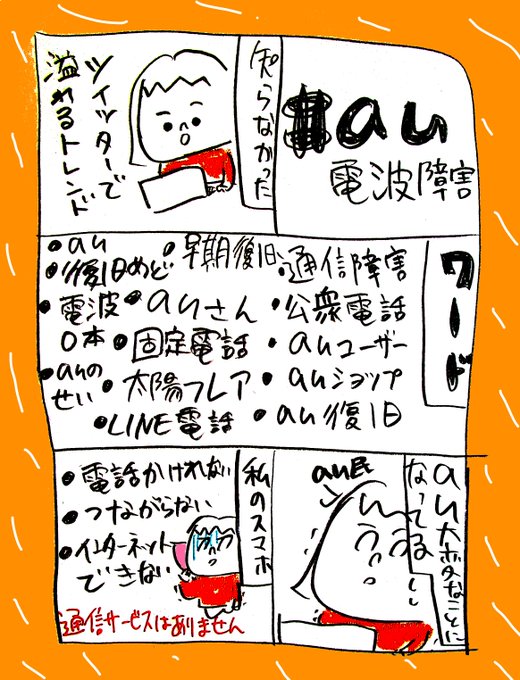 au
電波障害
知らなかった
ツイッターで
溢れるトレンド
ワード
●au
●復旧めど
●早期復旧
・通信障害
・電波
0本
●auさん
・公衆電話
●固定電話
・auユーザー
●auの
せい
・太陽フレア
・auショップ
●LINE電話
●au復旧
au大変なことに
なってる…
au民
私のスマホ
●電話かけれない
●つながらない
●インターネット
できない
通信サービスはありません